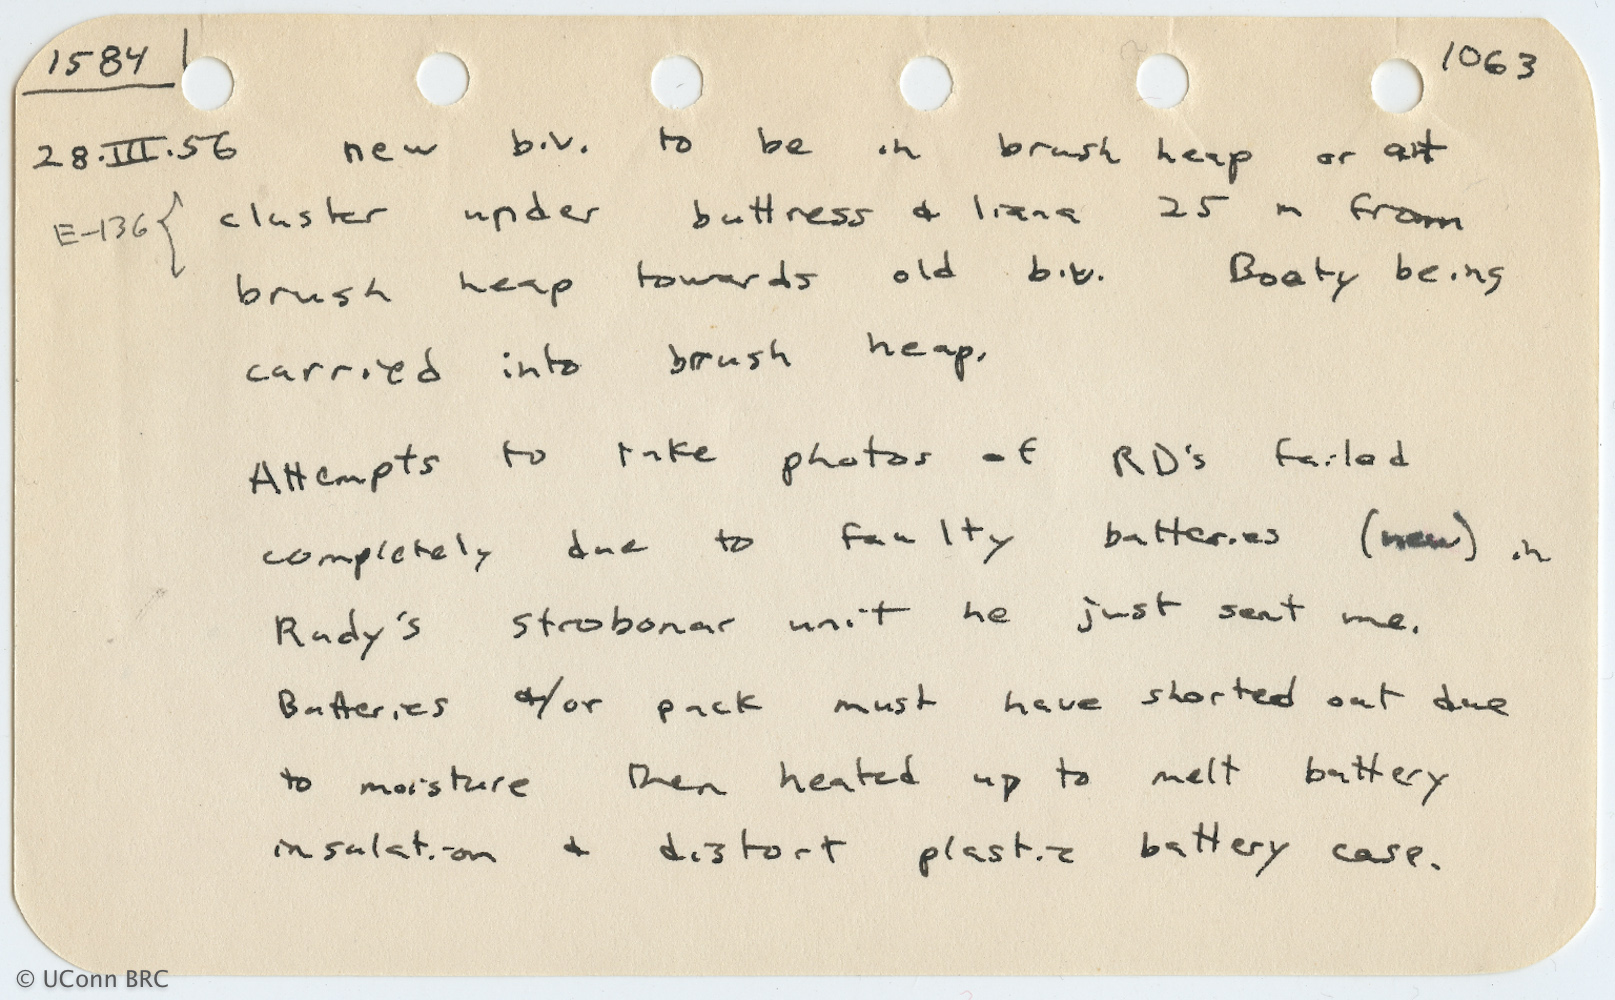 1584
1063
28.III.56 new b.v. to be in brush heap or at
E-136 { cluster under buttress & liana 25 m from
brush heap towards old b.v. Booty being
carried into brush heap.
Attempts to take photos of RD's failed
completely due to faulty batteries (new) in
Rudy's strobonar unit he just sent me.
Batteries &/or pack must have shorted out due
to moisture then heated up to melt battery
insulation & distort plastic battery case.
© UConn BRC